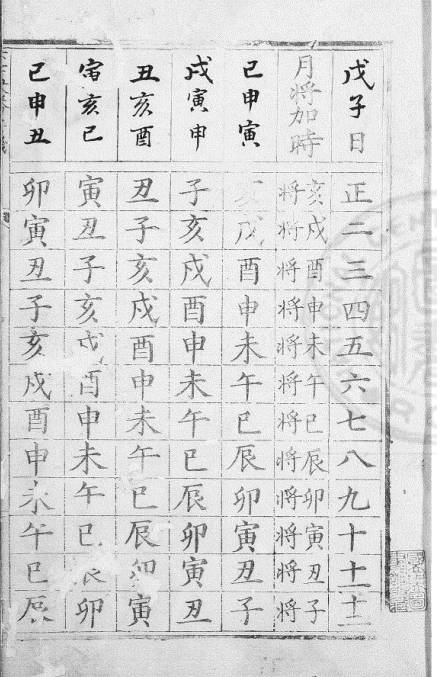 戊子日 正 二 三 四 五 六 七 八 九 十 十一 十二
月将加時 亥将 戌将 酉将 申将 未将 午将 巳将 辰将 卯将 寅将 丑将 子将
巳申寅 戌 酉 申 未 午 巳 辰 卯 寅 丑 子
戌寅申 子 亥 戌 酉 申 未 午 巳 辰 卯 寅 丑
丑亥酉 丑 子 亥 戌 酉 申 未 午 巳 辰 卯 寅
寅亥巳 寅 丑 子 亥 戌 酉 申 未 午 巳 辰 卯
巳申丑 卯 寅 丑 子 亥 戌 酉 申 未 午 巳 辰